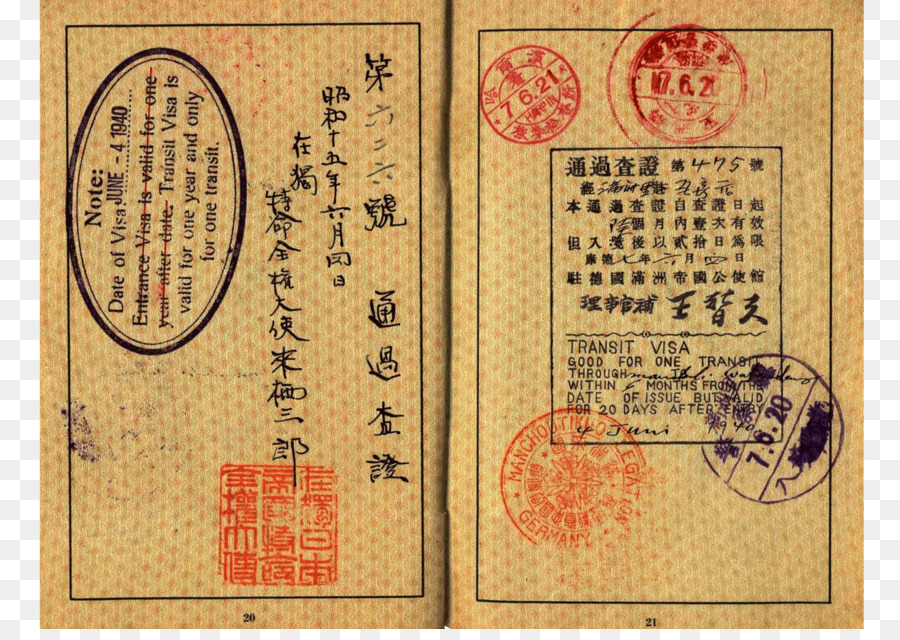 Note:
Date of Visa JUNE - 4 1940
Entrance Visa is valid for one
year after date. Transit Visa is
valid for one year and only
for one transit.
第六二六號 通過査證
昭和十五年六月四日
在獨
特命全權大使来栖三郎
20
7.6.21
HARPIN
7.6.21
通過査證 第475號
本通過査證自査證日起
陸個月內壹次有效
但入滿後以貳拾日爲限
康德七年六月四日
駐德國滿洲帝國公使館
理事官補 王替夫
TRANSIT VISA
GOOD FOR ONE TRANSIT
THROUGH
WITHIN 6 MONTHS FROM THE
DATE OF ISSUE BUT VALID
FOR 20 DAYS AFTER ENTRY
4 Juni 1940
7.6.20
MANCHOUTIKUO LEGATION
GERMANY
21